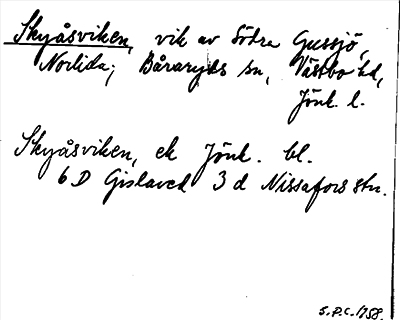 Skyåsviken, vik av Södra Gussjö,
Norlida; Båraryds sn, Västbo hd,
Jönk. l.
Skyåsviken, ek Jönk. bl.
6 D Gislaved 3 d Nissafors stn.
S.P.C. 1958.